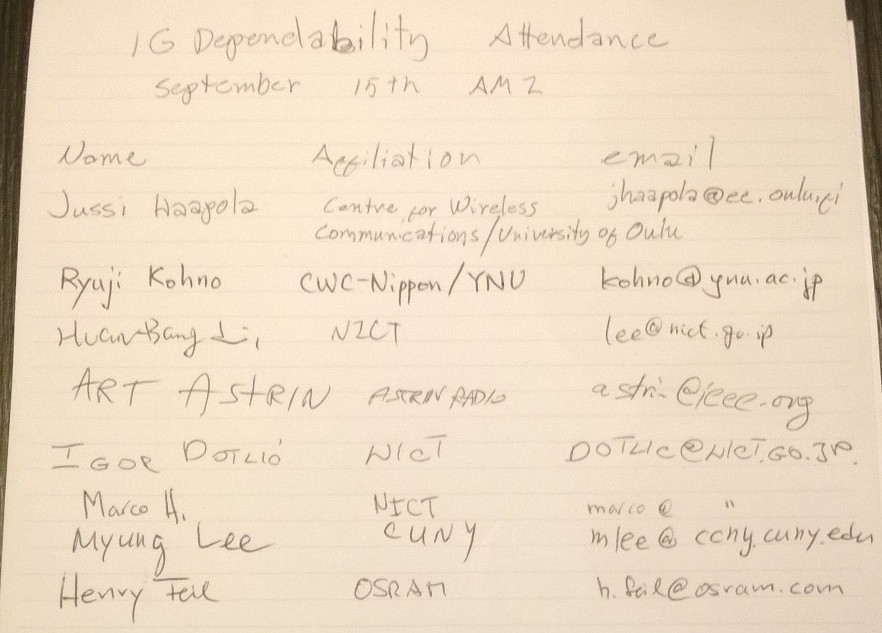 IG Dependability Attendance
September 15th AM2
Name Affiliation email
Jussi Haapola Centre for Wireless jhaapola@ee.oulu.fi
Communications/University of Oulu
Ryuji Kohno CWC-Nippon/YNU kohno@ynu.ac.jp
Huan-Bang Li, NICT lee@nict.go.jp
ART ASTRIN ASTRIN RADIO astrin@ieee.org
IGOR DOTLIĆ NICT DOTLIC@NICT.GO.JP.
Marco H. NICT marco @ "
Myung Lee CUNY mlee@ccny.cuny.edu
Henry Feil OSRAM h.feil@osram.com